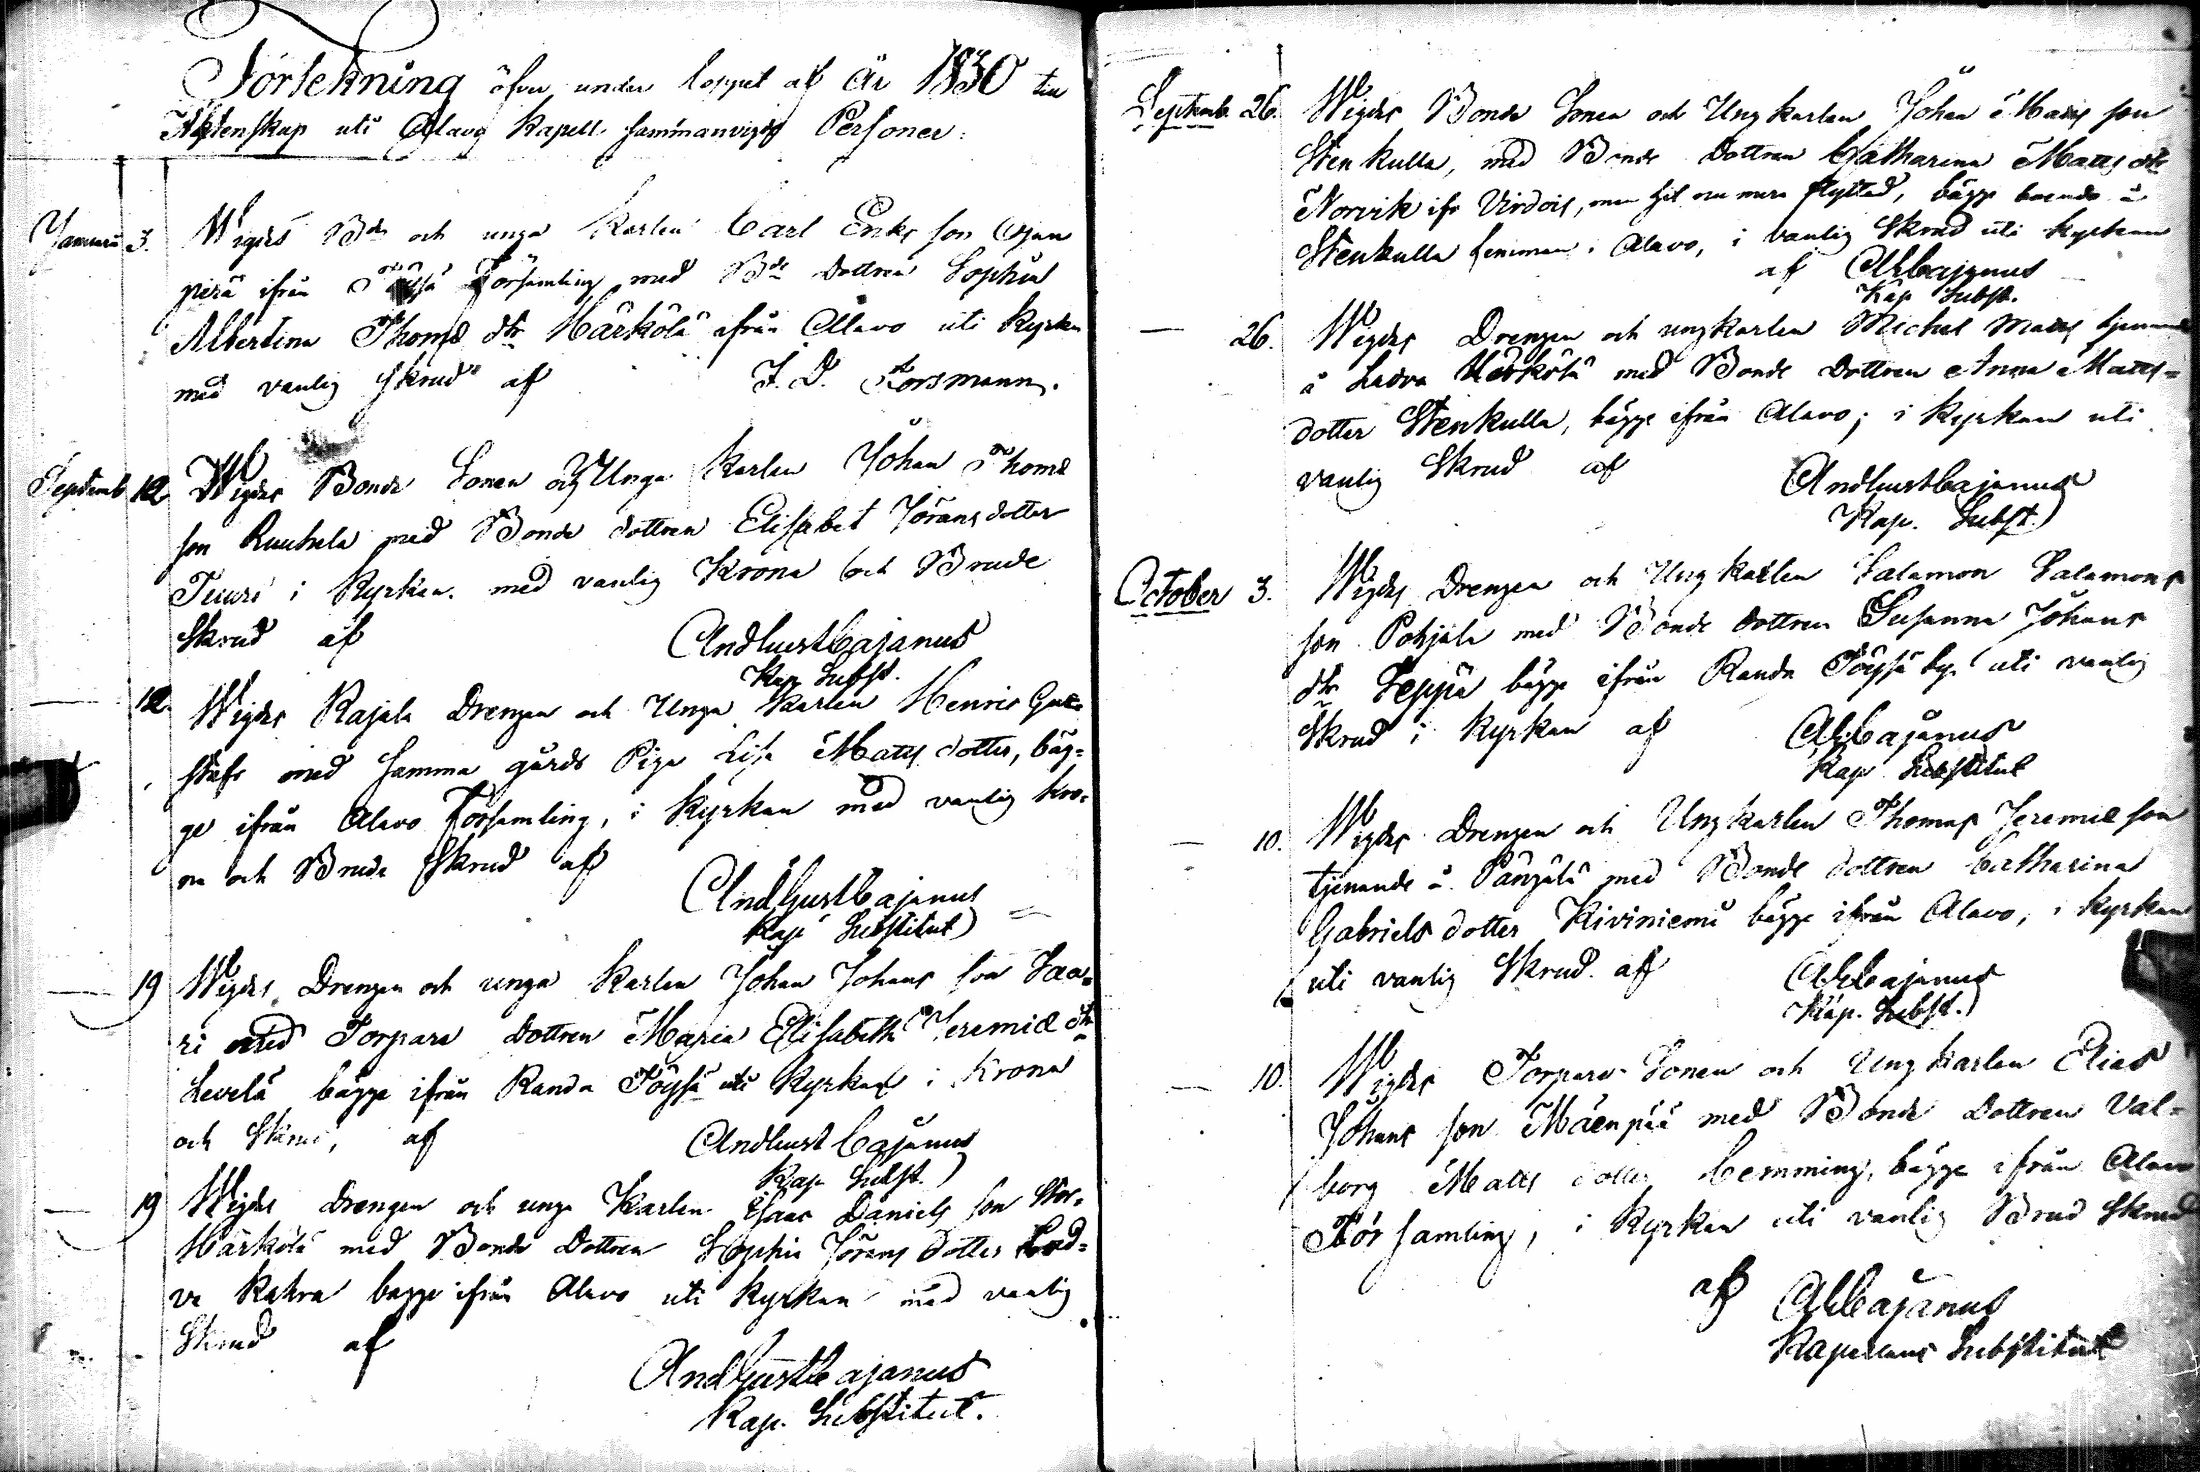 Förtekning öfver under loppet af år 1830 till
Äktenskap uti Alavo Kapell sammanvigde Personer.
Januarii 3. Wigdes Bde och unga Karlen Carl Eriks son Ojan
perä ifrån Töysä Församling med Bde Dottren Sophia
Albertina Thomæ dtr Härkölä ifrån Alavo uti Kyrkan
med vanlig skrud af J. D. Forsmann.
Septemb. 12. Wigdes Bonde Sonen och Unga Karlen Johan Thomæ
son Ruuhela med Bonde dottren Elisabet Jörans dotter
Tuuri i Kyrkan med vanlig Krona och Brude
Skrud af AndGustCajanus
Kap. Subst.
— 12. Wigdes Rajala Drengen och Unga Karlen Henric Gus-
stafs med samma gårds Piga Lisa Matts dotter, båg-
ge ifrån Alavo Församling, i Kyrkan med vanlig Kro-
na och Brude Skrud af
AndGustCajanus
Kap. Substitut)
— 19 Wigdes Drengen och unga Karlen Johan Johans son Saa-
ri med Torpare Dottren Maria Elisabeth Jeremiæ dtr
Levelä bägge ifrån Randa Töysä uti Kyrkan i Krona
och Skrud, af AndGust Cajanus
Kap. Subst.)
— 19 Wigdes Drengen och unga Karlen Isaac Daniels son Stor-
Härkölä med Bonde Dottren Sophia Jörans Dotter Lad-
va Kahra bägge ifrån Alavo uti Kyrkan med vanlig
Skrud af
AndGustCajanus
Kap. Substitut.
Septemb. 26. Wigdes Bonde Sonen och Ung karlen Johan Matts son
Stenkulla, med Bonde Dottren Catharina Matts dtr
Norvik ifr Virdois, men hit nu mera flyttad, bägge boende å
Stenkulla hemman i Alavo, i vanlig Skrud uti Kyrkan
af AGCajanus
Kap Subst.
— 26. Wigdes Drengen och ungkarlen Michel Matts tjenande
å Ladva Härkölä med Bonde Dottren Anna Matts-
dotter Stenkulla, bägge ifrån Alavo; i Kyrkan uti
vanlig Skrud af
AndGustCajanus
Kap. Subst.)
October 3. Wigdes Drengen och Ung karlen Salamon Salamons
son Pohjala med Bonde dottren Susanna Johans
dtr Seppä bägge ifrån Randa Töysä by. uti vanlig
Skrud i Kyrkan af AGCajanus
Kap Substitut
— 10. Wigdes Drengen och Ung karlen Thomas Jeremiæ son
tjenande å Pänzälä med Bonde dottren Catharina
Gabriels dotter Kiviniemi bägge ifrån Alavo, i Kyrkan
uti vanlig Skrud af AGCajanus
Kap. Subst.)
— 10. Wigdes Torpare Sonen och Ung karlen Elias
Johans son Mäenpää med Bonde Dottren Val-
borg Matts dotter Hemming, bägge ifrån Alavo
Församling, i Kyrkan uti vanlig Brud Skrud
af AGCajanus
Kapellans Substitut